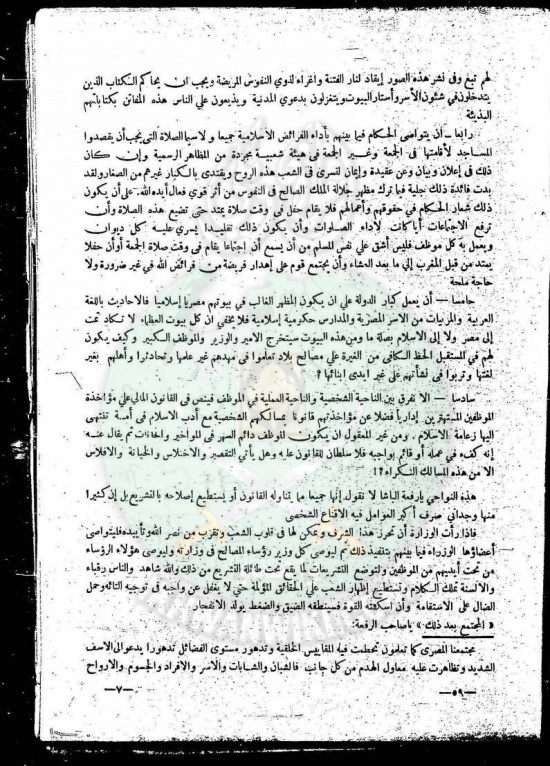 لهم تبغ وفى نشر هذه الصور إيقاد لنار الفتنة واغراء لذوي النفوس المريضة ويجب ان يحاكم الكتاب الذين
يتدخلون في شئون الأسر وأستار البيوت ويتغزلون بدعوي المدنية ويذيعون علي الناس هذه المفاتن بكتاباتهم
البذيئة
رابعا — أن يتواصى الحكام فيما بينهم بأداء الفرائض الاسلامية جميعا ولاسيما الصلاة التى يجب أن يقصدوا
المساجد لأقامتها فى الجمعة وغير الجمعة فى هيئة شعبية مجردة من المظاهر الرسمية وإن كان
ذلك فى إعلان وبيان وعن عقيدة وإيمان لتسرى فى الشعب هذه الروح ويقتدى بالكبار غيرهم من الصغار ولقد
بدت فائدة ذلك جلية فيما ترك مظهر جلالة الملك الصالح فى النفوس من أثر قوي فعال أيده الله. على أن يكون
ذلك شعار الحكام فى حقوقهم وأعمالهم فلا يقام حفل فى وقت صلاة يمتد حتى تضيع هذه الصلاة وأن
ترفع الاجتماعات أيا كانت لاداء الصلوات وأن يكون ذلك تقليدا يسري عليه كل ديوان
ويعمل به كل موظف فليس أشق علي نفس المسلم من أن يسمع أن اجتماعا يقام فى وقت صلاة الجمعة أو أن حفلا
يمتد من قبل المغرب إلي ما بعد العشاء وأن يجتمع قوم على إهدار فريضة من فرائض الله في غير ضرورة ولا
حاجة ملحة
خامسا — أن يعمل كبار الدولة على ان يكون المظهر الغالب فى بيوتهم مصريا إسلاميا فالاحاديث باللغة
العربية والمربيات من الاسر المصرية والمدارس حكومية إسلامية فلا يخفي ان كل بيوت العظماء لا تكاد تمت
إلى مصر ولا إلى الاسلام بصلة ما ومن هذه البيوت سيتخرج الامير والوزير والموظف الكبير وكيف يكون
لهم فى المستقبل الحظ الكافى من الغيرة علي مصالح بلاد تعاموا فى مهدهم غير علمها وتحادثوا وأهلهم بغير
لغتها وتربوا فى نشأتهم علي غير ايدى ابنائها ؟
سادسا — الا نفرق بين الناحية الشخصية والناحية العملية في الموظف فينص فى القانون المالي علي مؤاخذة
الموظفين المستهترين إداريا فضلا عن مؤاخذتهم قانونا بمسالكهم الشخصية مع أدب الاسلام فى أمة تنتهى
اليها زعامة الاسلام. ومن غير المعقول ان يكون الموظف دائم السهر فى المواخير والحانات ثم يقال عنه
إنه كفء فى عمله أو قائم بواجبه فلا سلطان للقانون عليه وهل يأتي التقصير والاختلاس والخيانة والافلاس
الا من هذه المسالك النكراء ؟!
هذه النواحي يارفعة الباشا لا نقول إنها جميعا مما يتناوله القانون أو يستطيع إصلاحه بالتشريع بل إن كثيرا
منها وجداني صرف أكبر العوامل فيه الاقناع الشخصى
فاذا رأت الوزارة أن تحرز هذا الشرف وتمكن لها فى قلوب الشعب وتقرب من نصر الله وتأييده فليتواصى
أعضاؤها الوزراء فيما بينهم بتنفيذ ذلك ثم ليوصى كل وزير رؤساء المصالح فى وزارته وليوصى هؤلاء الرؤساء
من تحت أيديهم من الموظفين ولتوضع التشريعات لما يقع تحت طائلة التشريع من ذلك والله شاهد والناس رقباء
والالسنة تملك الكلام وتستطيع إظهار الشعب علي الحقائق المؤلمة حتى لا يغفل عن واجبه فى توجيه التائه وحمل
الضال على الاستقامة وأن اسكتته القوة فسينطقه الضيق والضغط يولد الانفجار.
« المجتمع بعد ذلك » ياصاحب الرفعة:
مجتمعنا المصرى كما تعلمون تحطمت فيه المقاييس الخلقية وتدهور مستوى الفضائل تدهورا يدعو الى الاسف
الشديد وتظاهرت عليه معاول الهدم من كل جانب فالشبان والشابات والاسر والافراد والجسوم والارواح
—٧— —٥٩—